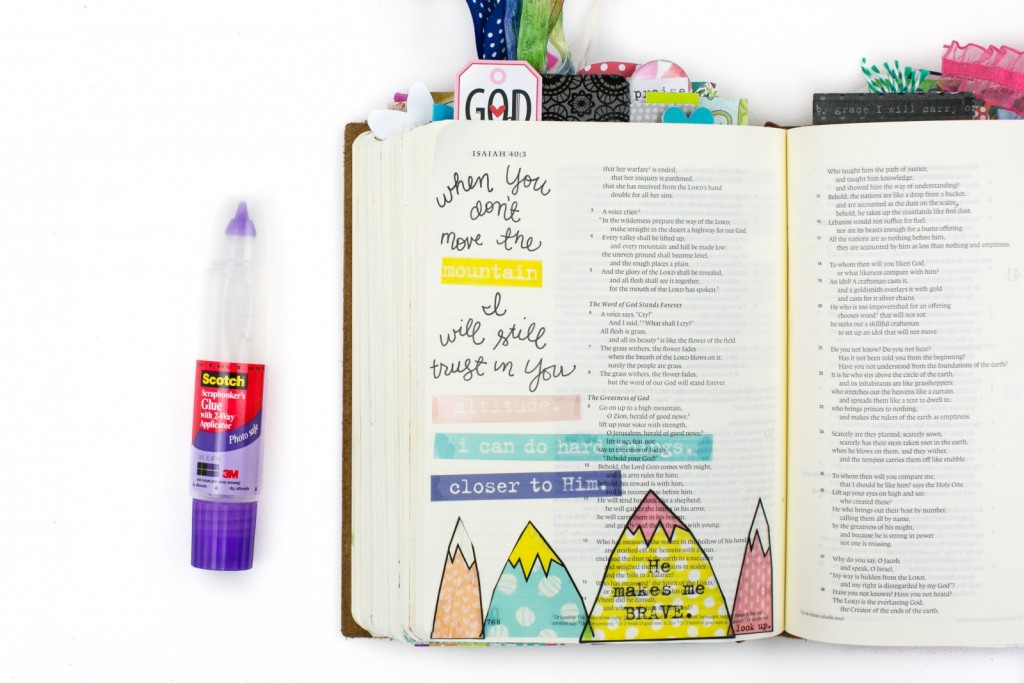 GOD
praise
b. grace I will carry
ISAIAH 40:3
when You
don't
move the
mountain
I
will still
trust in You
altitude.
i can do hard things.
closer to Him.
He
makes me
BRAVE.
look up.
768
that her warfare is ended,
that her iniquity is pardoned,
that she has received from the LORD's hand
double for all her sins.
3 A voice cries:
"In the wilderness prepare the way of the LORD;
make straight in the desert a highway for our God.
4 Every valley shall be lifted up,
and every mountain and hill be made low;
the uneven ground shall become level,
and the rough places a plain.
5 And the glory of the LORD shall be revealed,
and all flesh shall see it together,
for the mouth of the LORD has spoken."
The Word of God Stands Forever
6 A voice says, "Cry!"
And I said, "What shall I cry?"
All flesh is grass,
and all its beauty is like the flower of the field.
7 The grass withers, the flower fades
when the breath of the LORD blows on it;
surely the people are grass.
8 The grass withers, the flower fades,
but the word of our God will stand forever.
The Greatness of God
9 Go on up to a high mountain,
O Zion, herald of good news;
lift up your voice with strength,
O Jerusalem, herald of good news;
lift it up, fear not;
"Behold your God!"
10 Behold, the Lord GOD comes with might,
and his arm rules for him;
his reward is with him,
He will tend his flock like a shepherd;
he will gather the lambs in his arms;
Who taught him the path of justice,
and taught him knowledge,
and showed him the way of understanding?
15 Behold, the nations are like a drop from a bucket,
and are accounted as the dust on the scales;
behold, he takes up the coastlands like fine dust.
16 Lebanon would not suffice for fuel,
nor are its beasts enough for a burnt offering.
17 All the nations are as nothing before him,
they are accounted by him as less than nothing and emptiness.
18 To whom then will you liken God,
or what likeness compare with him?
19 An idol! A craftsman casts it,
and a goldsmith overlays it with gold
and casts for it silver chains.
20 He who is too impoverished for an offering
chooses wood that will not rot;
he seeks out a skillful craftsman
to set up an idol that will not move.
21 Do you not know? Do you not hear?
Has it not been told you from the beginning?
Have you not understood from the foundations of the earth?
22 It is he who sits above the circle of the earth,
and its inhabitants are like grasshoppers;
who stretches out the heavens like a curtain,
and spreads them like a tent to dwell in;
23 who brings princes to nothing,
and makes the rulers of the earth as emptiness.
24 Scarcely are they planted, scarcely sown,
scarcely has their stem taken root in the earth,
when he blows on them, and they wither,
and the tempest carries them off like stubble.
25 To whom then will you compare me,
that I should be like him? says the Holy One.
26 Lift up your eyes on high and see:
who created these?
He who brings out their host by number,
calling them all by name,
by the greatness of his might,
and because he is strong in power
not one is missing.
27 Why do you say, O Jacob,
and speak, O Israel,
"My way is hidden from the LORD,
and my right is disregarded by my God"?
28 Have you not known? Have you not heard?
The LORD is the everlasting God,
the Creator of the ends of the earth.
Scotch
Scrapbooker's
Glue
with 2-Way
Applicator
Photo safe
3M